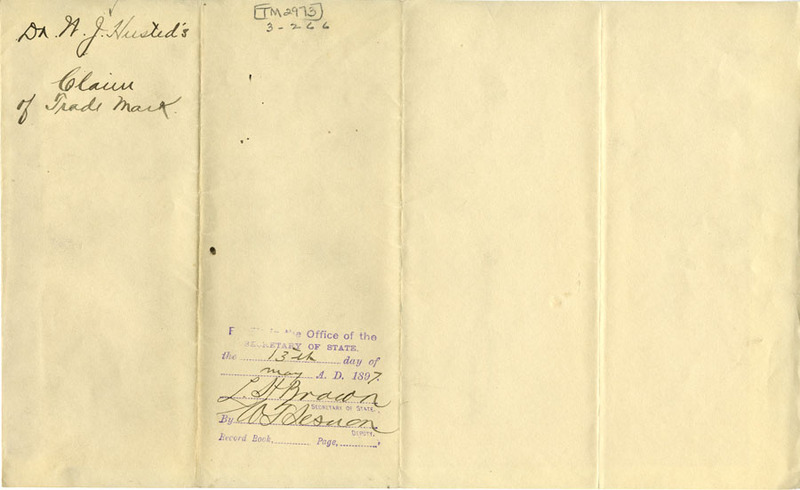 Dr. W. J. Husted's
Claim
of Trade Mark.
TM2973
3-266
the Office of the
SECRETARY OF STATE.
the 13th day of
May A. D. 1897.
L H Brown
SECRETARY OF STATE.
By
DEPUTY.
Record Book, Page,